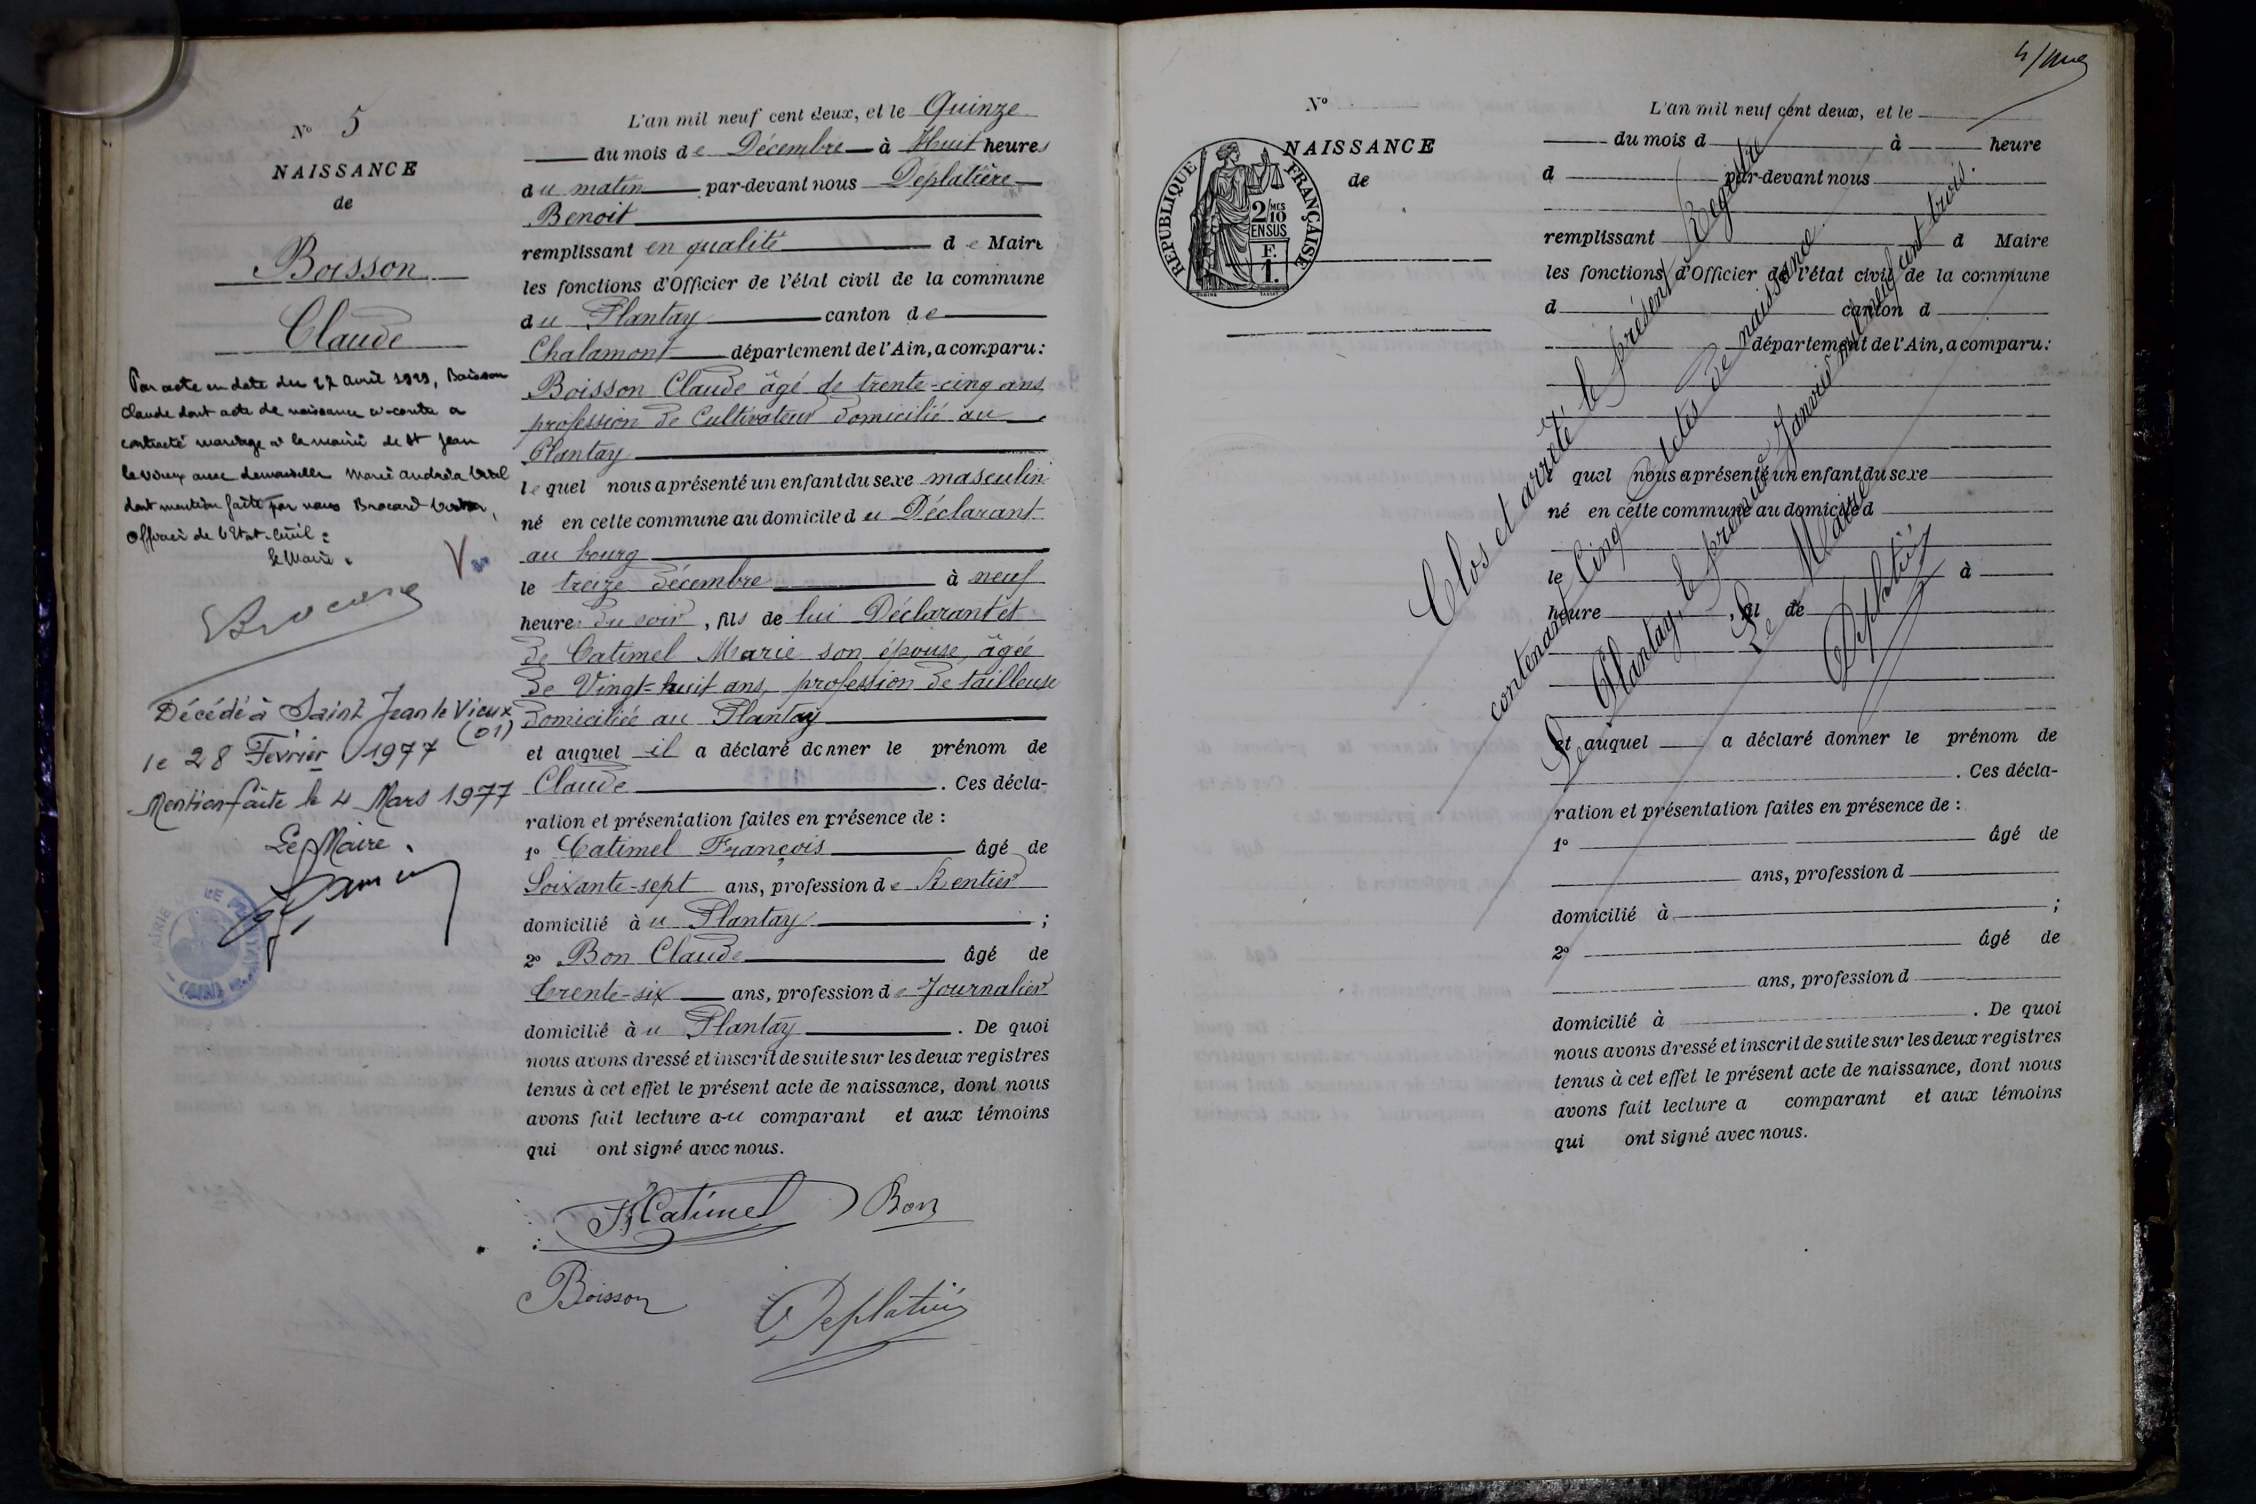 N° 5
NAISSANCE
de
Boisson
Claude
Par acte en date du 27 avril 1929, Boisson
Claude dont acte de naissance ci-contre a
contracté mariage à la mairie de St Jean
le Vieux avec demoiselle Marie Andréa
dont mention faite par nous Brocard
Officier de l'Etat-Civil :
Le Maire.
Brocard
Décédé à Saint Jean le Vieux
(01)
le 28 Février 1977
Mention faite le 4 Mars 1977
Le Maire.
MAIRIE DE PLANTAY (AIN)
L'an mil neuf cent deux, et le Quinze
du mois de Décembre à Huit heures
du matin par-devant nous Déplatière
Benoit
remplissant en qualité de Maire
les fonctions d'Officier de l'état civil de la commune
du Plantay canton de
Chalamont département de l'Ain, a comparu :
Boisson Claude âgé de trente-cinq ans,
profession de Cultivateur domicilié au
Plantay
lequel nous a présenté un enfant du sexe masculin
né en cette commune au domicile du Déclarant
au bourg
le treize décembre à neuf
heures du soir, fils de lui Déclarant et
de Catimel Marie son épouse, âgée
de Vingt-huit ans, profession de tailleuse
domiciliée au Plantay
et auquel il a déclaré donner le prénom de
Claude. Ces décla-
ration et présentation faites en présence de :
1° Catimel François âgé de
Soixante-sept ans, profession de Rentier
domicilié au Plantay ;
2° Bon Claude âgé de
trente-six ans, profession de Journalier
domicilié au Plantay. De quoi
nous avons dressé et inscrit de suite sur les deux registres
tenus à cet effet le présent acte de naissance, dont nous
avons fait lecture au comparant et aux témoins
qui ont signé avec nous.
Fs Catimel Bon
Boisson Deplatière
4/
N°
NAISSANCE
de
RÉPUBLIQUE FRANÇAISE
2/10 MES
EN SUS
F.
1.
L'an mil neuf cent deux, et le
du mois d à heure
d par-devant nous
remplissant d Maire
les fonctions d'Officier de l'état civil de la commune
d canton d
département de l'Ain, a comparu :
quel nous a présenté un enfant du sexe
né en cette commune au domicile d
le à
heure , fil de
et auquel a déclaré donner le prénom de
. Ces décla-
ration et présentation faites en présence de :
1° âgé de
ans, profession d
domicilié à ;
2° âgé de
ans, profession d
domicilié à . De quoi
nous avons dressé et inscrit de suite sur les deux registres
tenus à cet effet le présent acte de naissance, dont nous
avons fait lecture a comparant et aux témoins
qui ont signé avec nous.
Clos et arrêté le présent Registre
contenant Cinq Actes de naissance.
Le Plantay, le premier Janvier mil neuf cent trois.
Le Maire
Deplatière